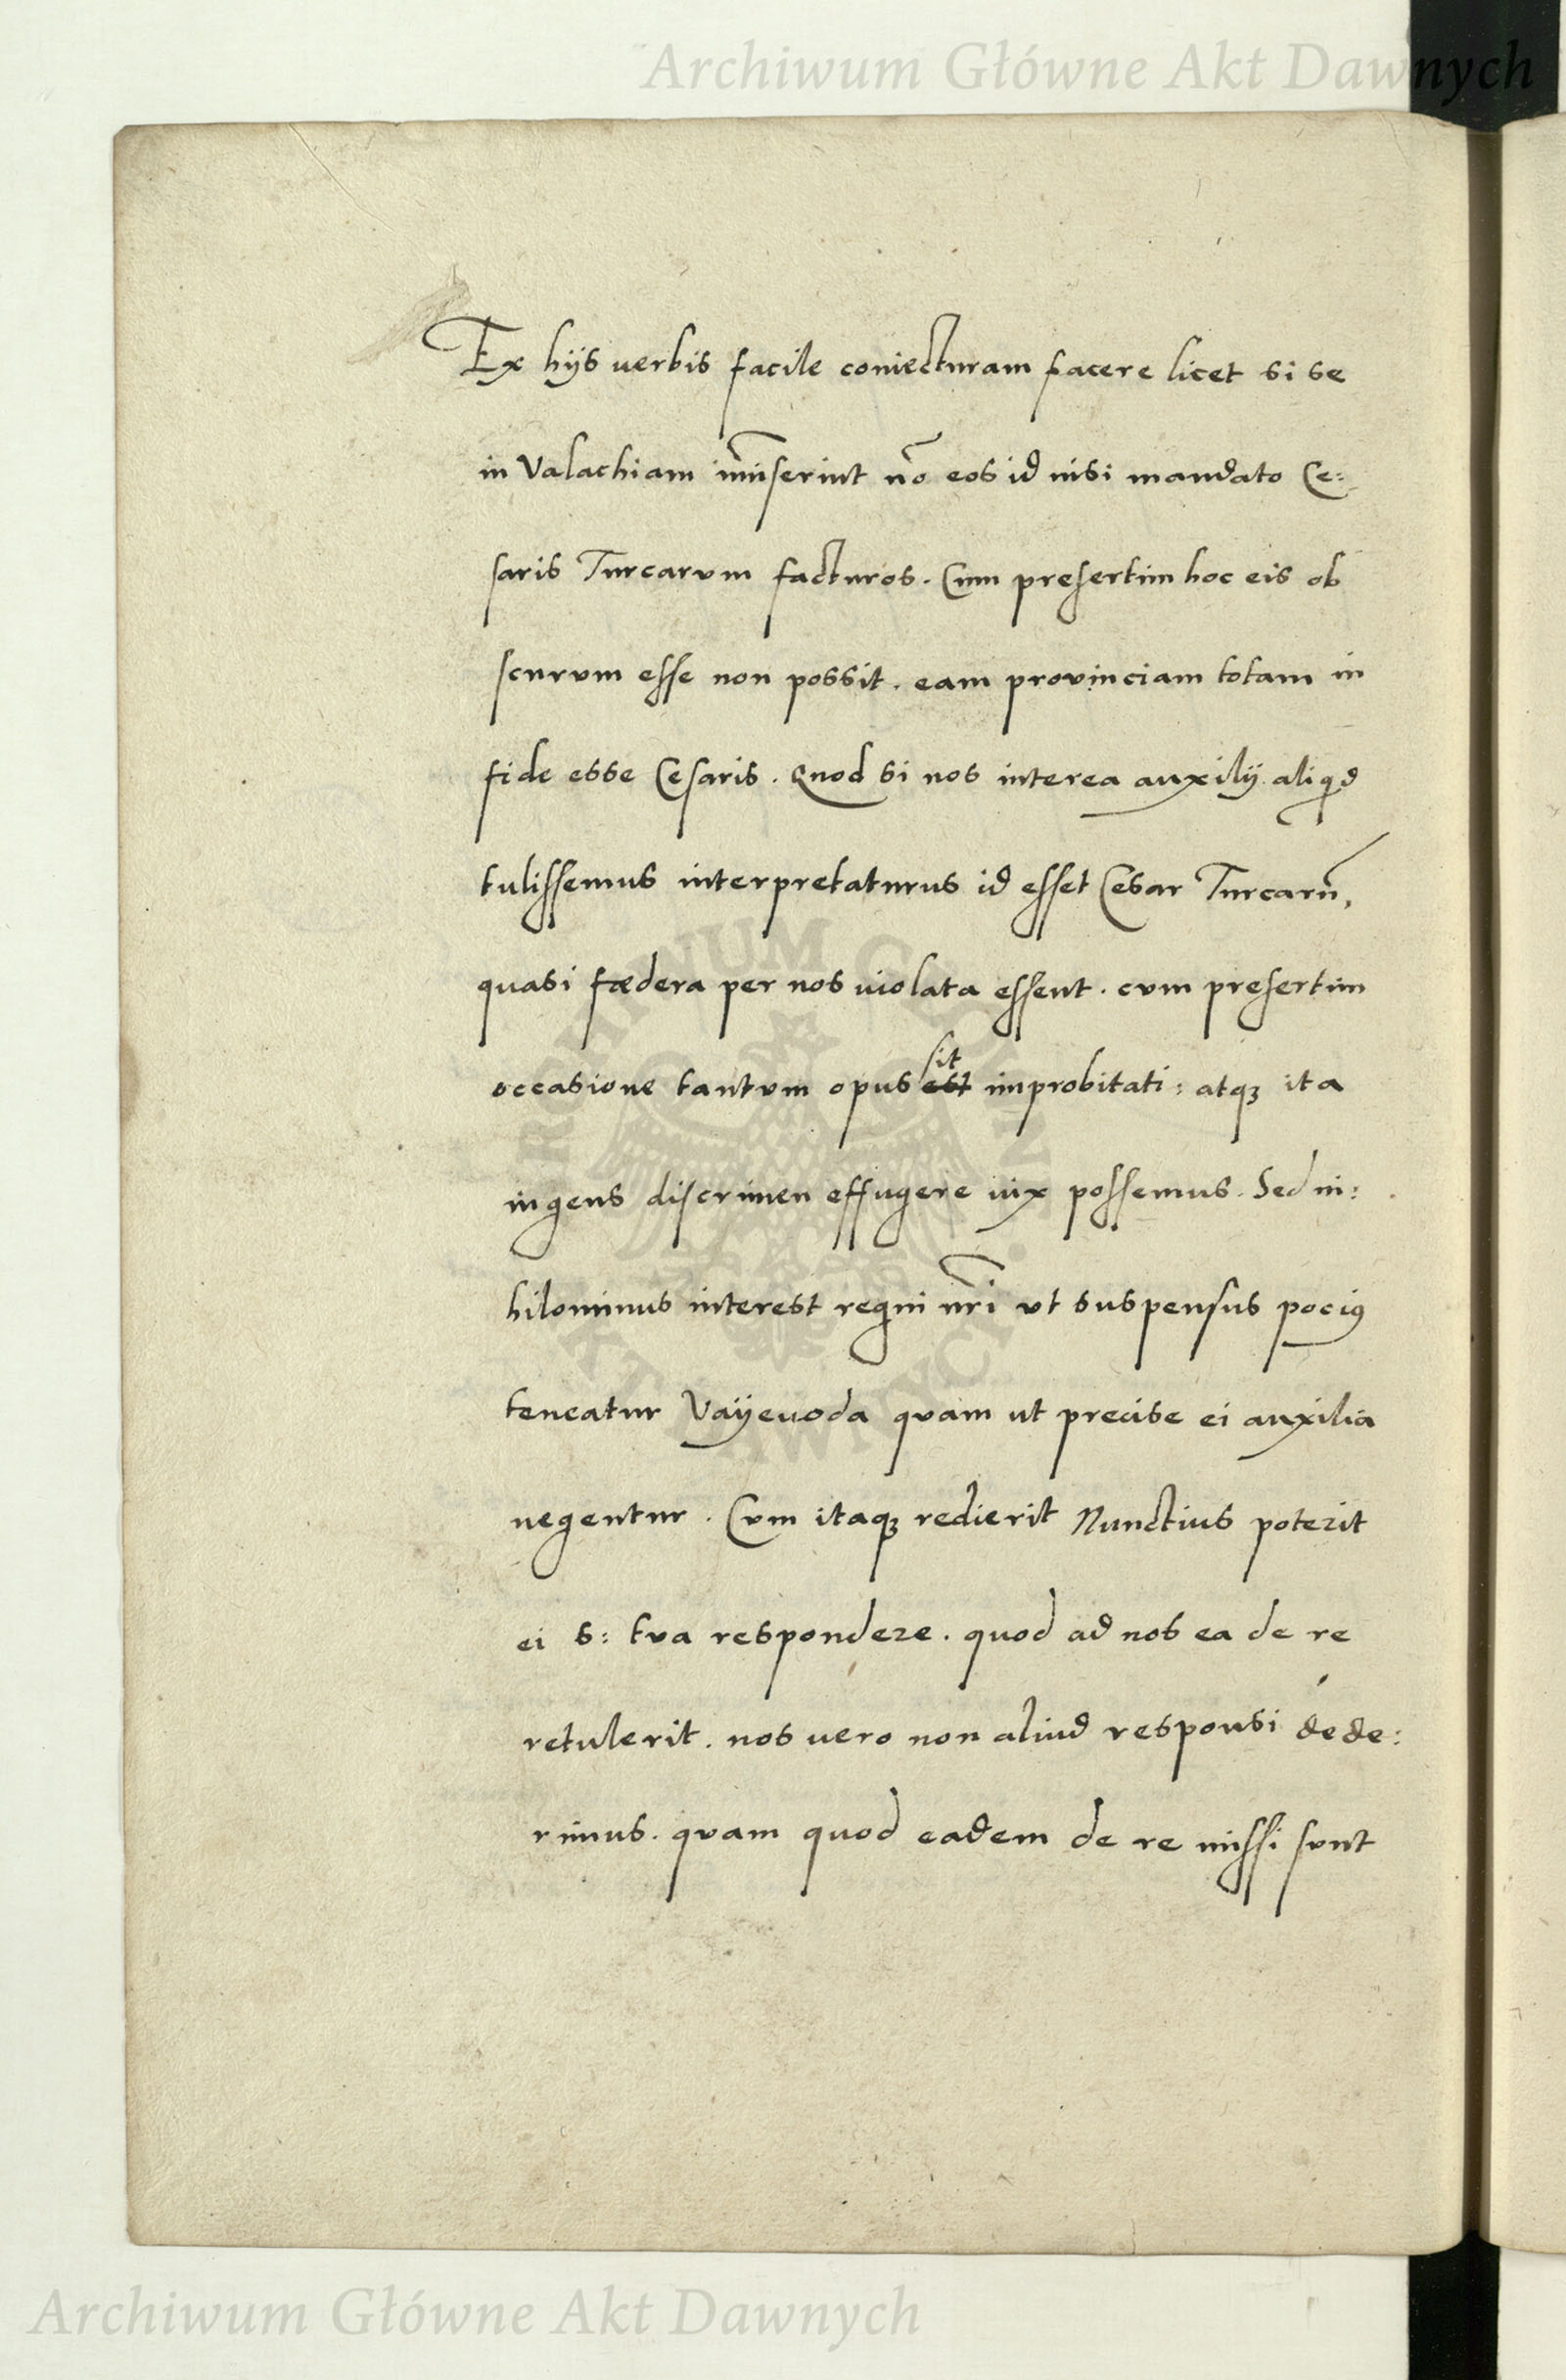 Archiwum Główne Akt Dawnych
Ex hijs uerbis facile coniecturam facere licet si se
in Valachiam im̃iserint nõ eos id nisi mandato Ce:
saris Turcarum facturos. Cum presertim hoc eis ob
scurum esse non possit. eam provinciam totam in
fide esse Cesaris. Quod si nos interea auxilij aliqd
tulissemus interpretaturus id esset Cesar Turcarũ,
quasi fædera per nos uiolata essent. cum presertim
sit
occasione tantum opus est improbitati: atqꝫ ita
ingens discrimen effugere uix possemus. Sed ni:
hilominus interest regni nr̃i vt suspensus pociꝰ
teneatur Vaÿevoda quam ut precise ei auxilia
negentur. Cum itaqꝫ redierit Nunctius poterit
ei s: tua respondere. quod ad nos ea de re
retulerit. nos uero non aliud responsi dede:
rimus. quam quod eadem de re missi sunt
ARCHIWUM GŁÓWNE AKT DAWNYCH
Archiwum Główne Akt Dawnych